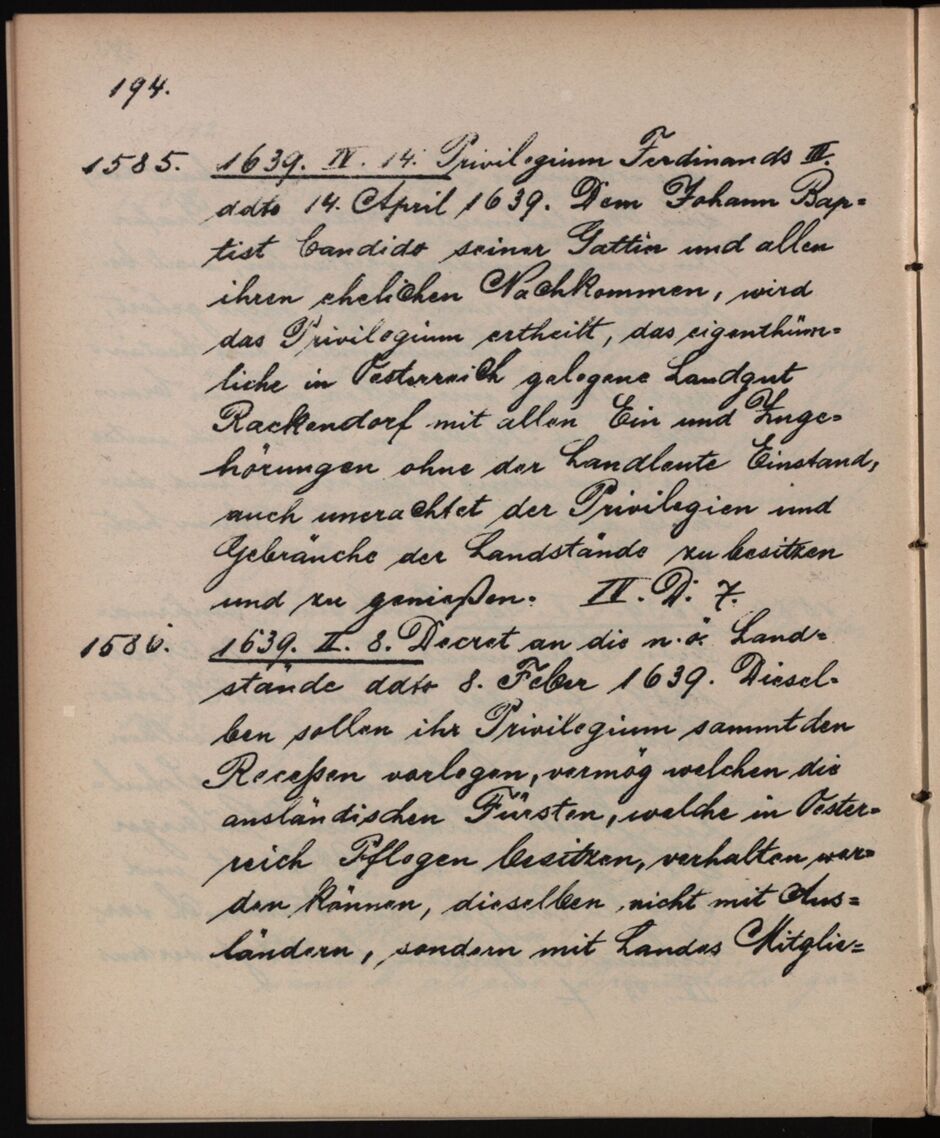 194.
1585. 1639. IV. 14. Privilegium Ferdinands III.
ddto 14. April 1639. Dem Johann Bap=
tist Candido seiner Gattin und allen
ihren ehelichen Nachkommen, wird
das Privilegium ertheilt, das eigenthüm=
liche in Oesterreich gelegene Landgut
Rackendorf mit allen Ein und Zuge=
hörungen ohne der Landleute Einstand,
auch unerachtet der Privilegien und
Gebräuche der Landstände zu besitzen
und zu genießen. IV. D. 7.
1586. 1639. II. 8. Decret an die n. ö. Land=
stände ddto 8. Feber 1639. Diesel-
ben sollen ihr Privilegium sammt den
Receßen vorlegen, vermög welchen die
ausländischen Fürsten, welche in Oester=
reich Pflegen besitzen, verhalten wer=
den können, dieselben nicht mit Aus=
ländern, sondern mit Landes Mitglie=